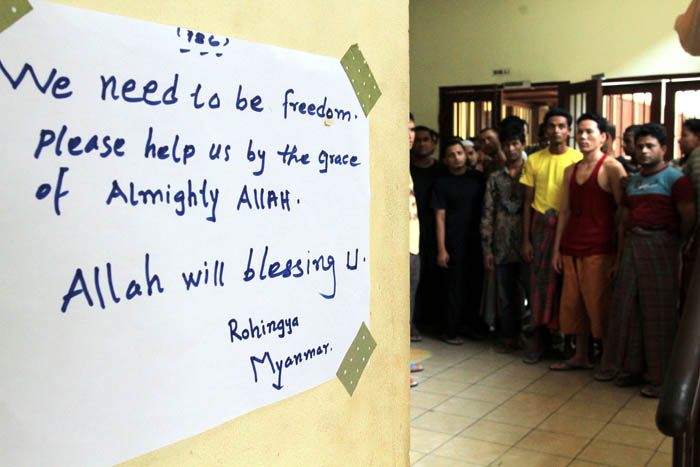 (786)
We need to be freedom.
please help us by the grace
of Almighty ALLAH.
Allah will blessing U.
Rohingya
Myanmar.